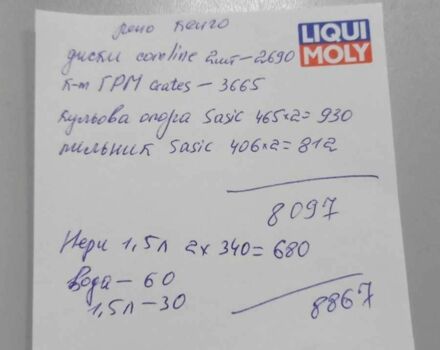 рено кенго
LIQUI MOLY
диски comline 2шт – 2690
к-т ГРМ Gates – 3665
кульова опора Sasic 465х2= 930
пильник Sasic 406х2= 812
8097
1,5л 2х 340= 680
вода – 60
1,5л – 30
8867